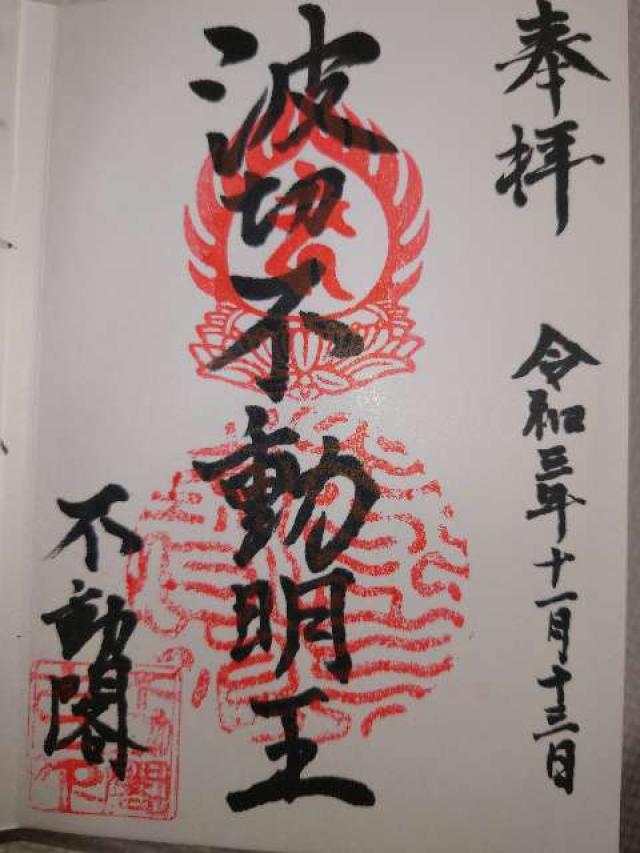 奉拝
令和三年十一月十三日
波切不動明王
不動閣